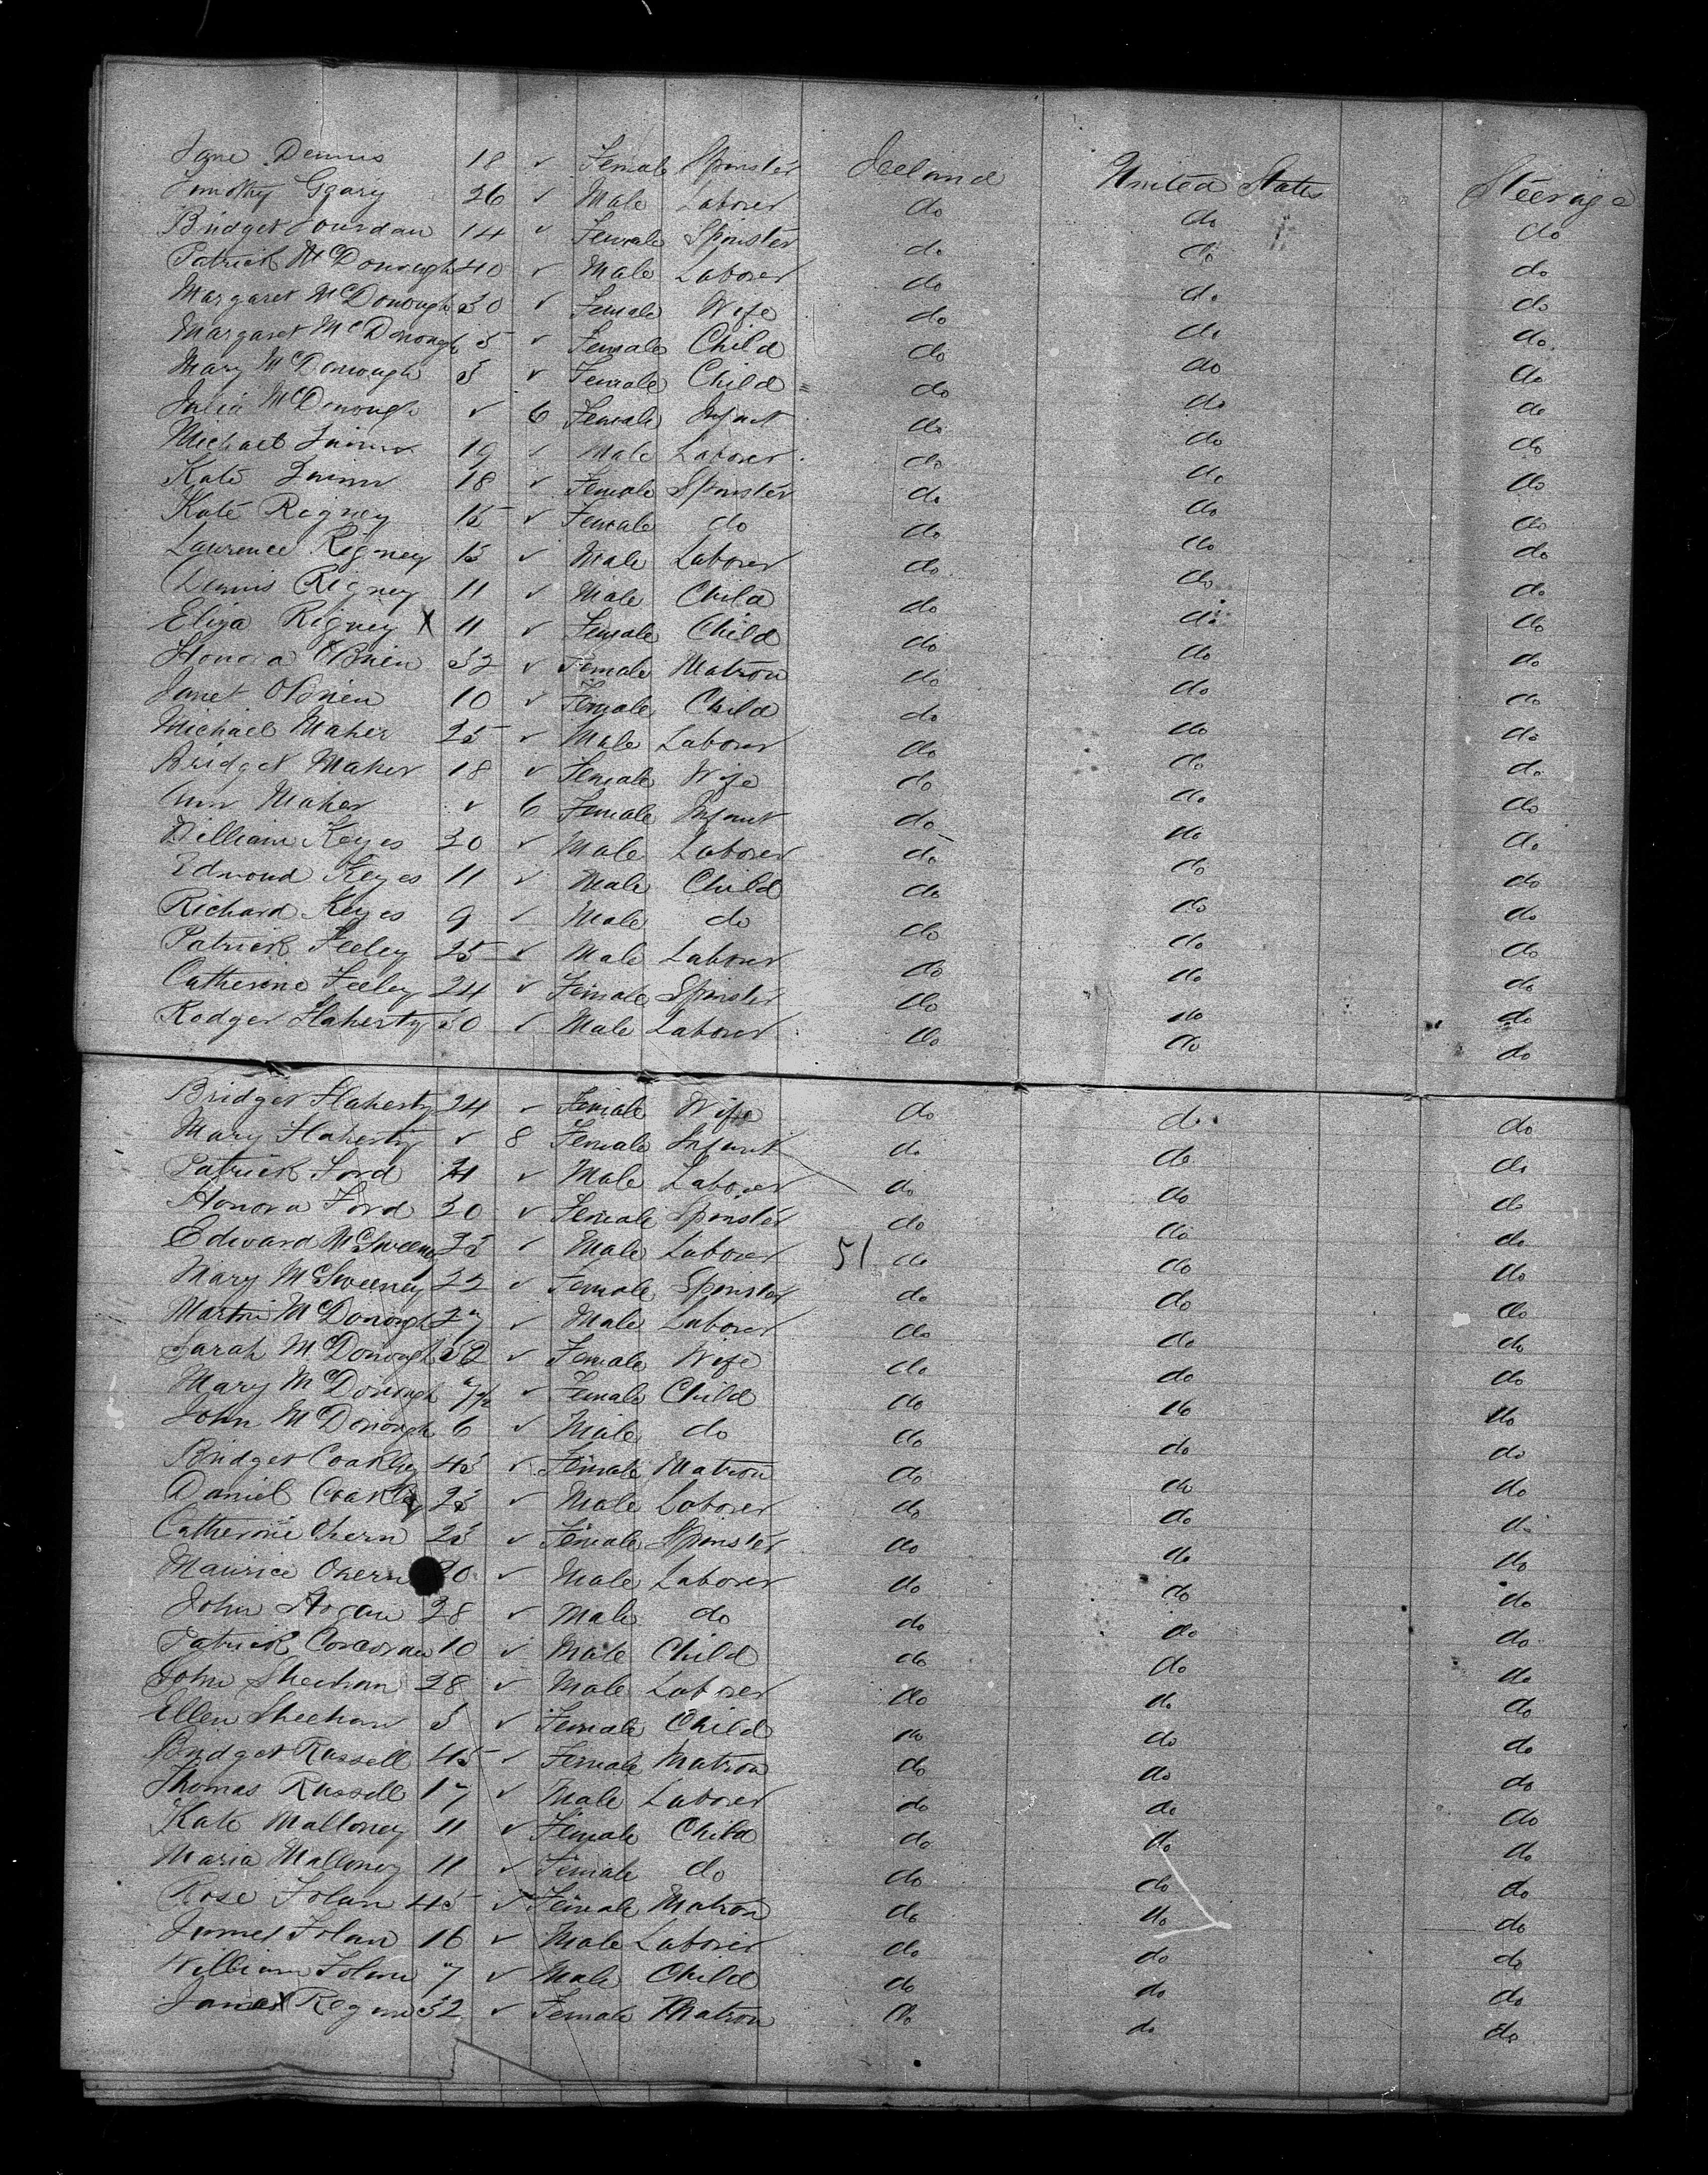 Jane Dennis 18 ✓ Female Spinster Ireland United States Steerage
Timothy Geary 26 ✓ Male Laborer do do do
Bridget Jourdan 14 ✓ Female Spinster do do do
Patrick McDonough 40 ✓ Male Laborer do do do
Margaret McDonough 30 ✓ Female Wife do do do
Margaret McDonough 5 ✓ Female Child do do do
Mary McDonough 3 ✓ Female Child do do do
Julia McDonough ✓ 6 Female Infant do do do
Michael Quinn 19 ✓ Male Laborer do do do
Kate Quinn 18 ✓ Female Spinster do do do
Kate Rigney 15 ✓ Female do do do do
Lawrence Rigney 13 ✓ Male Laborer do do do
Dennis Rigney 11 ✓ Male Child do do do
Eliza Rigney X 11 ✓ Female Child do do do
Honora OBrien 32 ✓ Female Matron do do do
Janet OBrien 10 ✓ Female Child do do do
Michael Maher 25 ✓ Male Laborer do do do
Bridget Maher 18 ✓ Female Wife do do do
Ann Maher ✓ 6 Female Infant do do do
William Keyes 30 ✓ Male Laborer do do do
Edmond Keyes 11 ✓ Male Child do do do
Richard Keyes 9 ✓ Male do do do do
Patrick Feeley 25 ✓ Male Laborer do do do
Catherine Feeley 24 ✓ Female Spinster do do do
Rodger Flaherty 30 ✓ Male Laborer do do do
Bridget Flaherty 24 ✓ Female Wife do do do
Mary Flaherty ✓ 8 Female Infant do do do
Patrick Ford 21 ✓ Male Laborer do do do
Honora Ford 20 ✓ Female Spinster do do do
Edward McSweeney 23 ✓ Male Laborer 51 do do do
Mary McSweeney 22 ✓ Female Spinster do do do
Martin McDonough 27 ✓ Male Laborer do do do
Sarah McDonough 32 ✓ Female Wife do do do
Mary McDonough 7½ ✓ Female Child do do do
John McDonough 6 ✓ Male do do do do
Bridget Coakley 43 ✓ Female Matron do do do
Daniel Coakley 23 ✓ Male Laborer do do do
Catherine Ohern 23 ✓ Female Spinster do do do
Maurice Ohern 20 ✓ Male Laborer do do do
John Hogan 28 ✓ Male do do do do
Patrick Corcoran 10 ✓ Male Child do do do
John Sheehan 28 ✓ Male Laborer do do do
Ellen Sheehan 5 ✓ Female Child do do do
Bridget Russell 45 ✓ Female Matron do do do
Thomas Russell 17 ✓ Male Laborer do do do
Kate Malloney 11 ✓ Female Child do do do
Maria Malloney 11 ✓ Female do do do do
Rose Folan 45 ✓ Female Matron do do do
James Folan 16 ✓ Male Laborer do do do
William Folan 7 ✓ Male Child do do do
Jane X Regan 32 ✓ Female Matron do do do